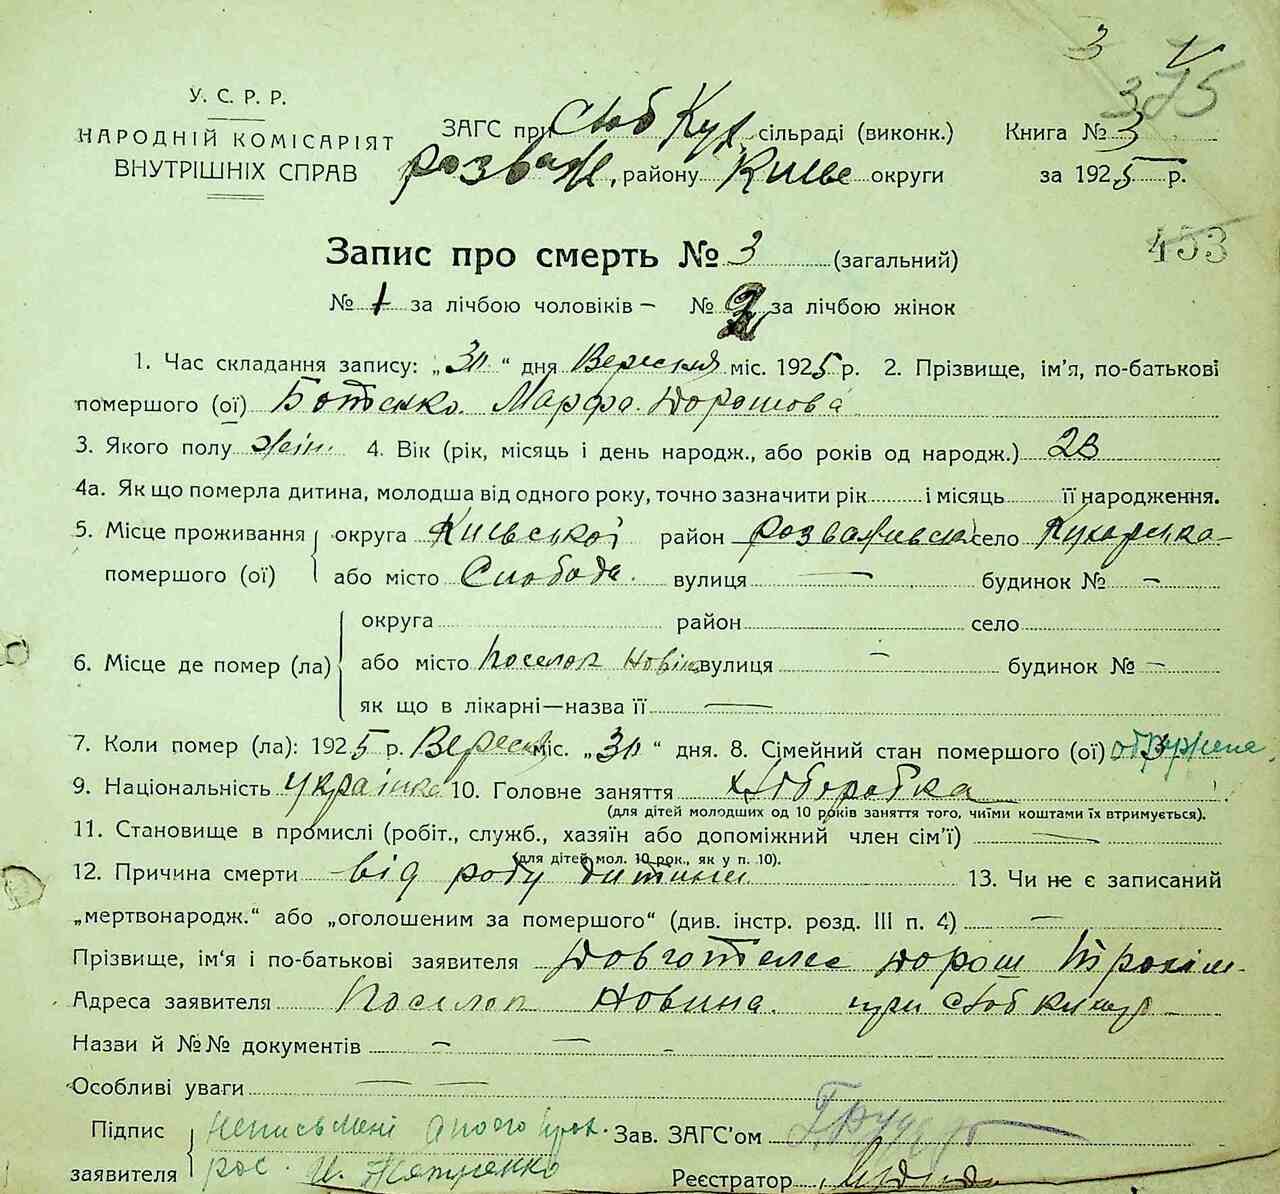 3
375
У. С. Р. Р.
НАРОДНІЙ КОМІСАРІЯТ
ВНУТРІШНІХ СПРАВ
ЗАГС при Слоб Кух. сільраді (виконк.)
Розваж. району Київс округи
Книга № 3
за 1925 р.
453
Запис про смерть № 3 (загальний)
№ 1 за лічбою чоловіків — № 2 за лічбою жінок
1. Час складання запису: „30“ дня Вересня міс. 1925 р. 2. Прізвище, ім'я, по-батькові
помершого (ої) Ботенко Марфа Дорошова
3. Якого полу жін. 4. Вік (рік, місяць і день народж., або років од народж.) 23
4а. Як що померла дитина, молодша від одного року, точно зазначити рік і місяць її народження.
5. Місце проживання округа Київської район Розважівськ село Кухарська-
помершого (ої) або місто Слобода. вулиця — будинок № —
округа район село
6. Місце де помер (ла) або місто Поселок Новин вулиця — будинок № —
як що в лікарні—назва її —
7. Коли помер (ла): 1925 р. Вересня міс. „30“ дня. 8. Сімейний стан помершого (ої) обружена
9. Національність українка 10. Головне заняття хліборобка
(для дітей молодших од 10 років заняття того, чиїми коштами їх втримується).
11. Становище в промислі (робіт., служб., хазяїн або допоміжний член сім'ї) —
(для дітей мол. 10 рок., як у п. 10).
12. Причина смерти від роду дитини 13. Чи не є записаний
„мертвонародж.“ або „оголошеним за помершого“ (див. інстр. розд. III п. 4) —
Прізвище, ім'я і по-батькові заявителя Довготелес Дорош Трохим-
Адреса заявителя Поселок Новина при Слоб
Назви й №№ документів — — -
Особливі уваги — —
Підпис заявителя неписьмені
рос. И.
Зав. ЗАГС'ом
Реєстратор